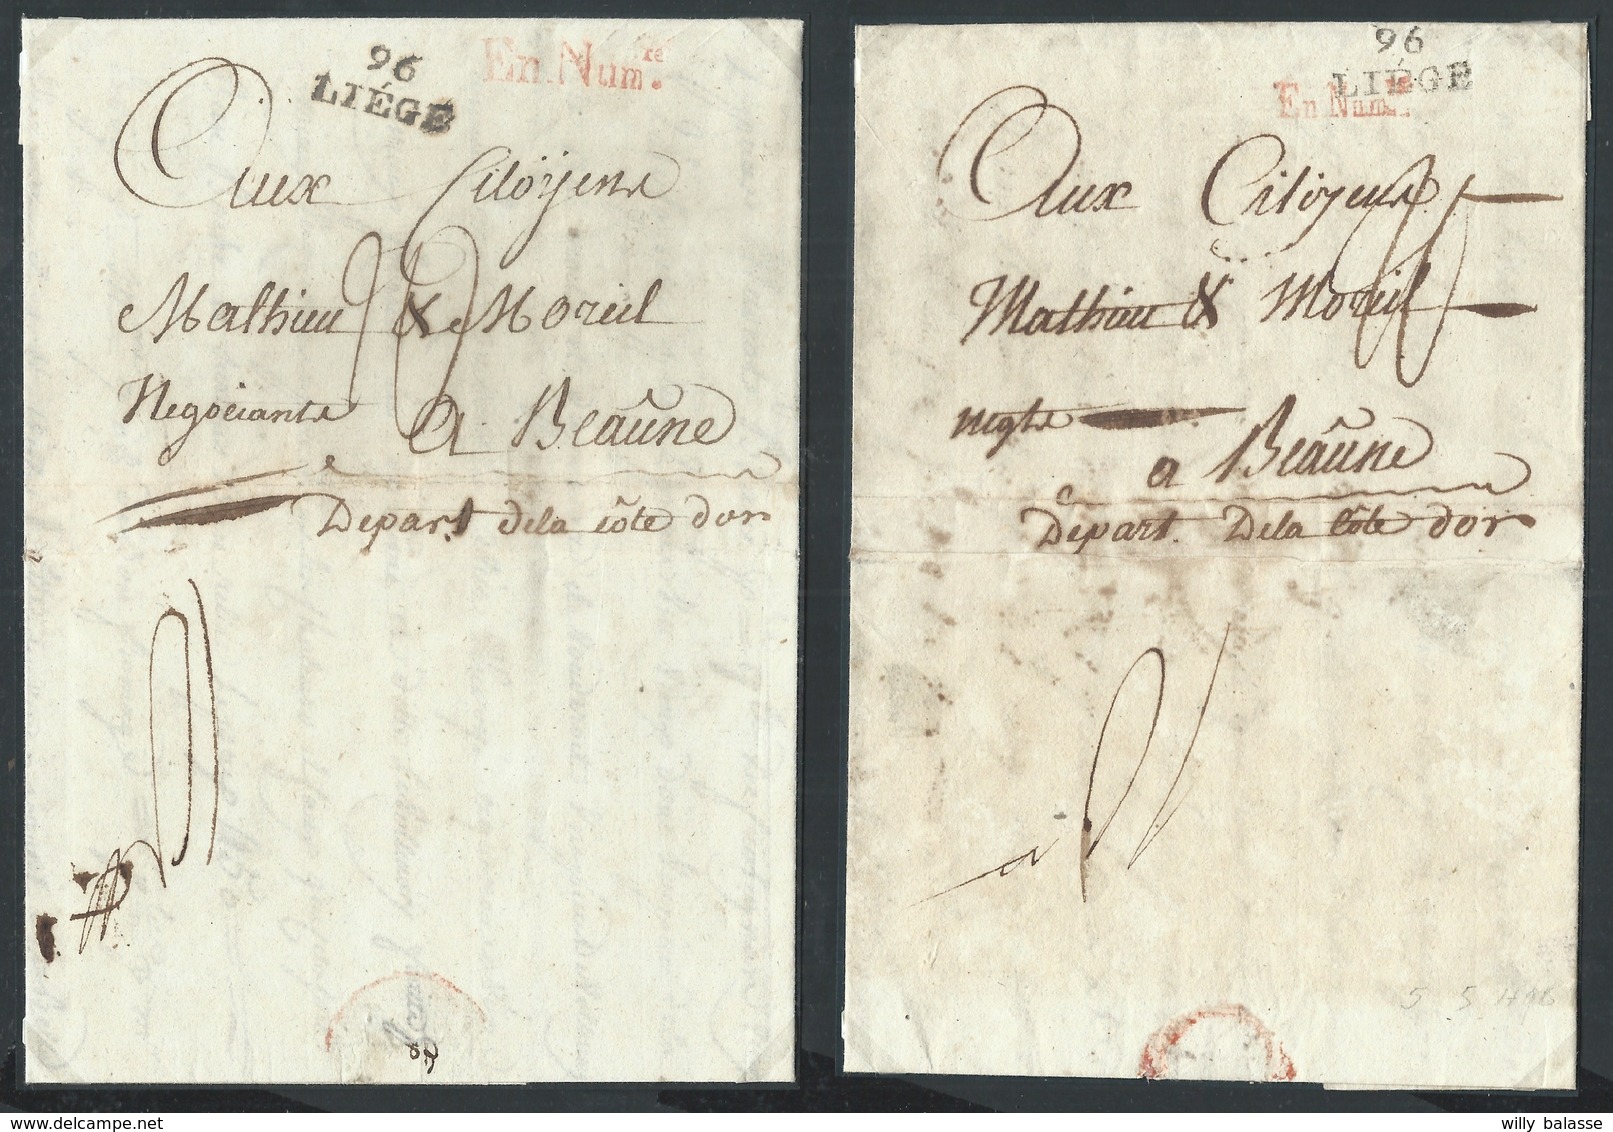 96
LIÉGE
En Num.re
Aux Citöyens
Mathieu & Moreil
Negociants a Beaûne
Depart dela côte dor
96
LIÉGE
En Num.re
Aux Citöyens
Mathieu & Moreil
negts
a Beaûne
Depart. Dela Côte dor
5 5 1796
willy balasse